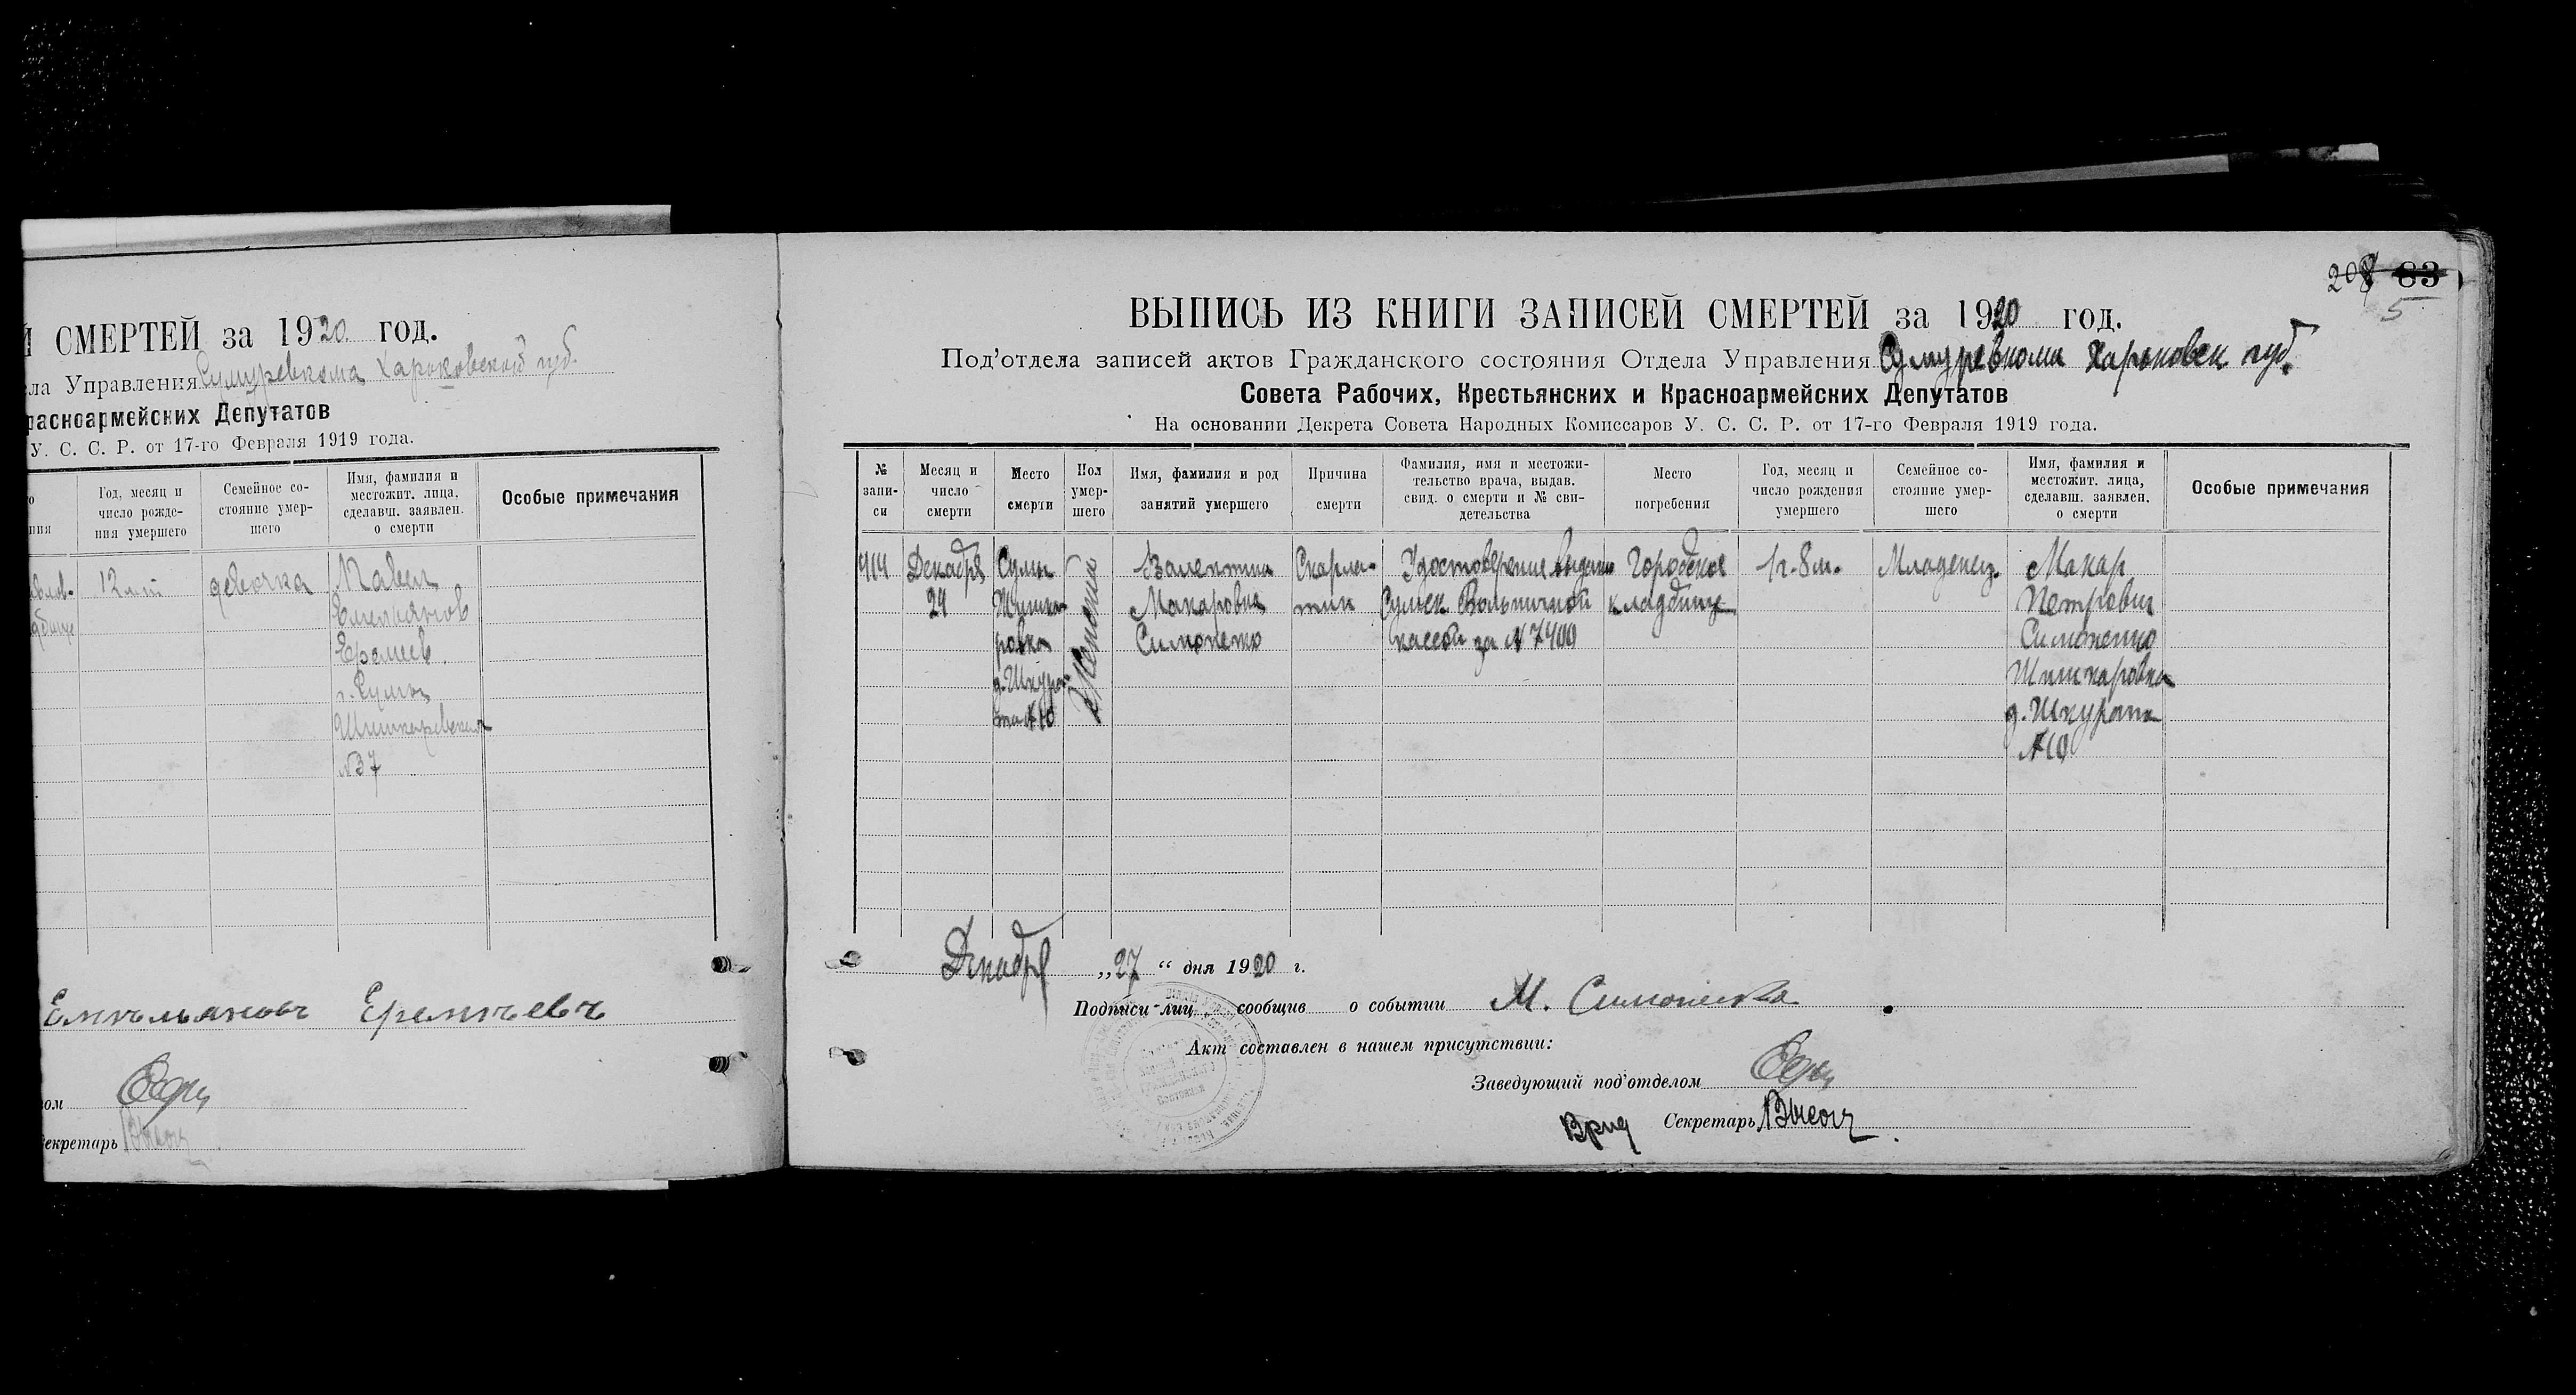 Й СМЕРТЕЙ за 1920 год.
ла Управления Сумуревкома Харьковской губ.
расноармейских Депутатов
У. С. С. Р. от 17-го Февраля 1919 года.
Год, месяц и
число рожде-
ния умершего
Семейное со-
стояние умер-
шего
Имя, фамилия и
местожит. лица,
сделавш. заявлен.
о смерти
Особые примечания
12 лет
девочка
Павел
Емельянов
Еремеев
г. Сумы
№37
Емельяновъ Еремѣевъ
ом
екретарь
208 83
5
ВЫПИСЬ ИЗ КНИГИ ЗАПИСЕЙ СМЕРТЕЙ за 1920 год.
Под'отдела записей актов Гражданского состояния Отдела Управления Сумуревкома Харьковск губ.
Совета Рабочих, Крестьянских и Красноармейских Депутатов
На основании Декрета Совета Народных Комиссаров У. С. С. Р. от 17-го Февраля 1919 года.
№
запи-
си
Месяц и
число
смерти
Место
смерти
Пол
умер-
шего
Имя, фамилия и род
занятий умершего
Причина
смерти
Фамилия, имя и местожи-
тельство врача, выдав.
свид. о смерти и № сви-
детельства
Место
погребения
Год, месяц и
число рождения
умершего
Семейное со-
стояние умер-
шего
Имя, фамилия и
местожит. лица,
сделавш. заявлен.
о смерти
Особые примечания
414
Декабря
24
Сумы
Шишка
ровка
д. Шкура
та №10
Женский
Валентина
Макаровна
Симоненко
Скарла-
тина
Удостоверение выдано
Сумск. Больничной
кассой за №7400
Городское
кладбище
1г. 8м.
Младенец.
Макар
Петрович
Симоненко
Шишкаровка
д. Шкурата
№10
Декабря „27“ дня 1920 г.
Подписи лиц сообщив о событии М. Симоненко
Акт составлен в нашем присутствии:
Заведующий под'отделом
Врид Секретарь